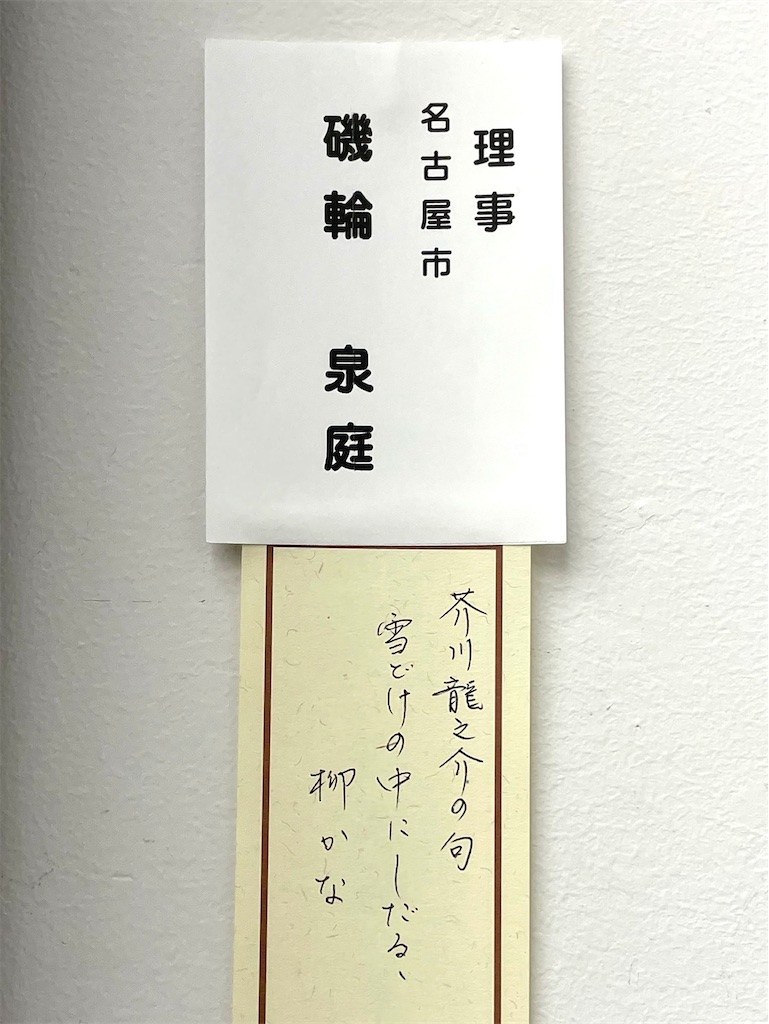 理事
名古屋市
磯輪 泉庭
芥川龍之介の句
雪どけの中にしだるゝ
柳かな